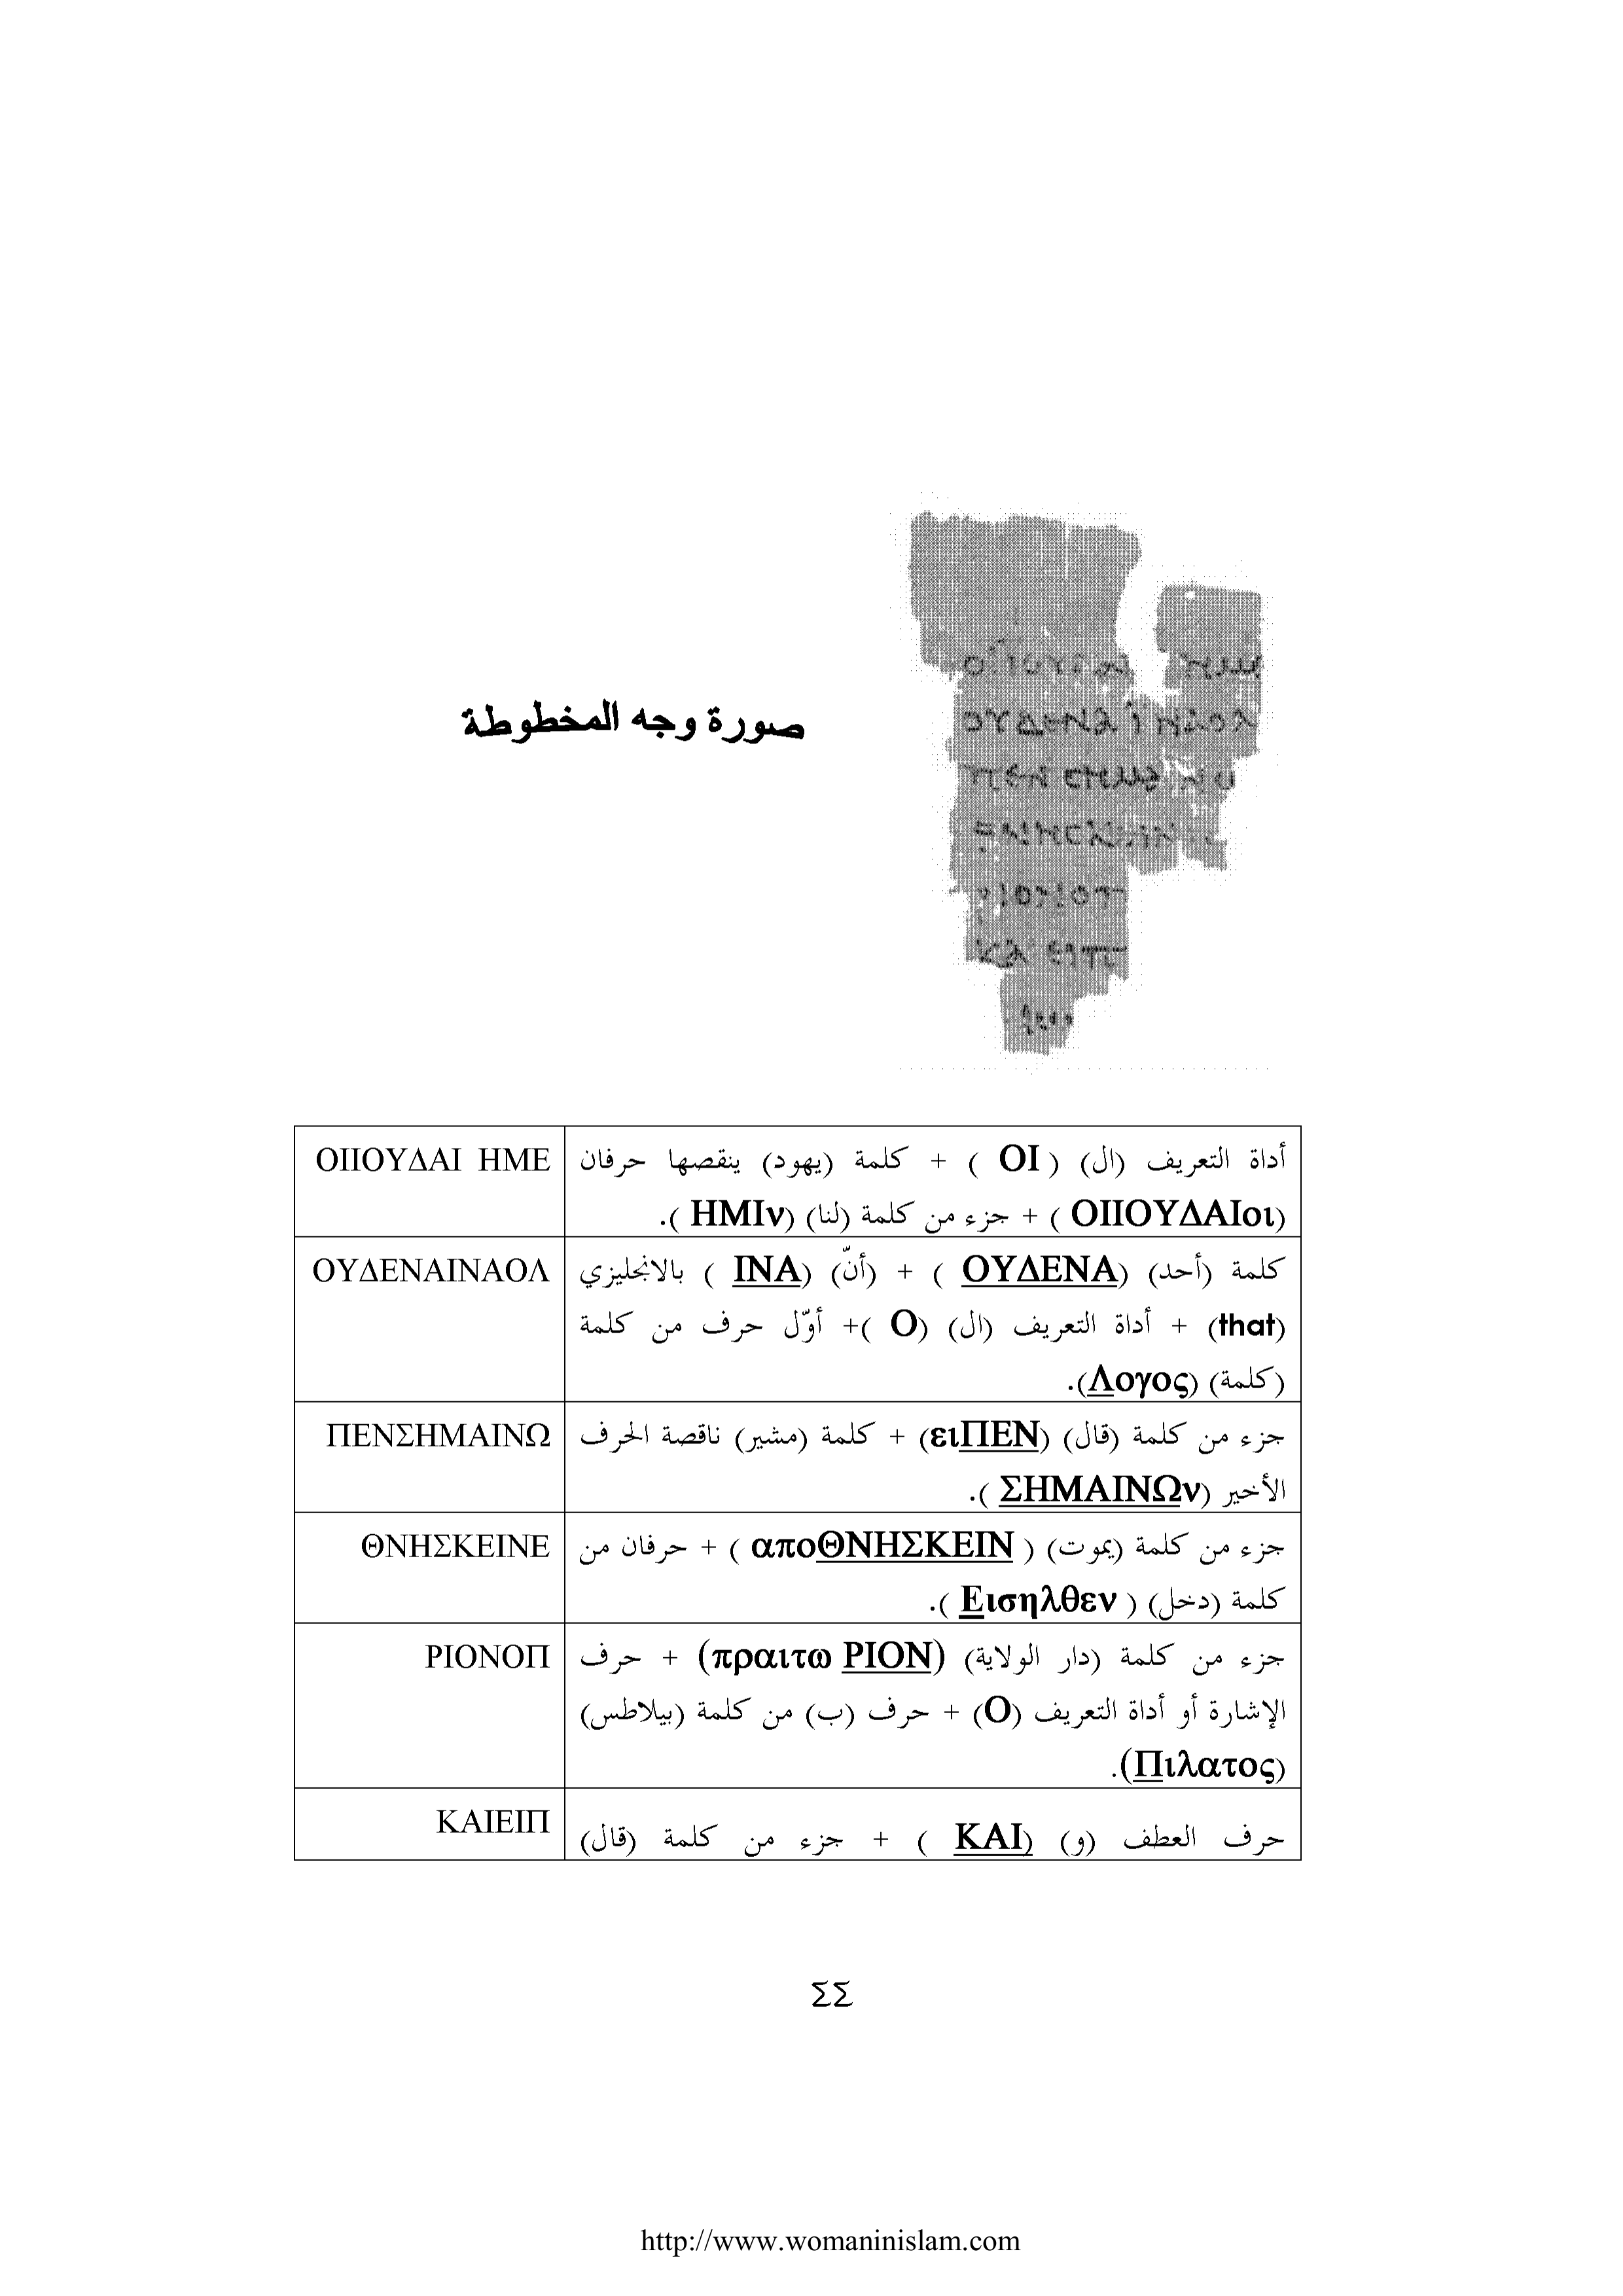 صورة وجه المخطوطة
أداة التعريف (ال) ( ΟΙ ) + كلمة (يهود) ينقصها حرفان
(ΟΙΙΟΥΔΑΙοι ) + جزء من كلمة (لنا) (ΗΜΙν ).
ΟΙΙΟΥΔΑΙ ΗΜΕ
كلمة (أحد) (ΟΥΔΕΝΑ ) + (أنّ) (ΙΝΑ ) بالانجليزي
(that) + أداة التعريف (ال) (Ο )+ أوّل حرف من كلمة
(كلمة) (Λογος).
ΟΥΔΕΝΑΙΝΑΟΛ
جزء من كلمة (قال) (ειΠΕΝ) + كلمة (مشير) ناقصة الحرف
الأخير (ΣΗΜΑΙΝΩν ).
ΠΕΝΣΗΜΑΙΝΩ
جزء من كلمة (يموت) ( αποΘΝΗΣΚΕΙΝ ) + حرفان من
كلمة (دخل) ( Εισηλθεν ).
ΘΝΗΣΚΕΙΝΕ
جزء من كلمة (دار الولاية) (πραιτω ΡΙΟΝ) + حرف
الإشارة أو أداة التعريف (Ο) + حرف (ب) من كلمة (بيلاطس)
(Πιλατος).
ΡΙΟΝΟΠ
حرف العطف (و) (ΚΑΙ ) + جزء من كلمة (قال)
ΚΑΙΕΙΠ
٤٤
http://www.womaninislam.com